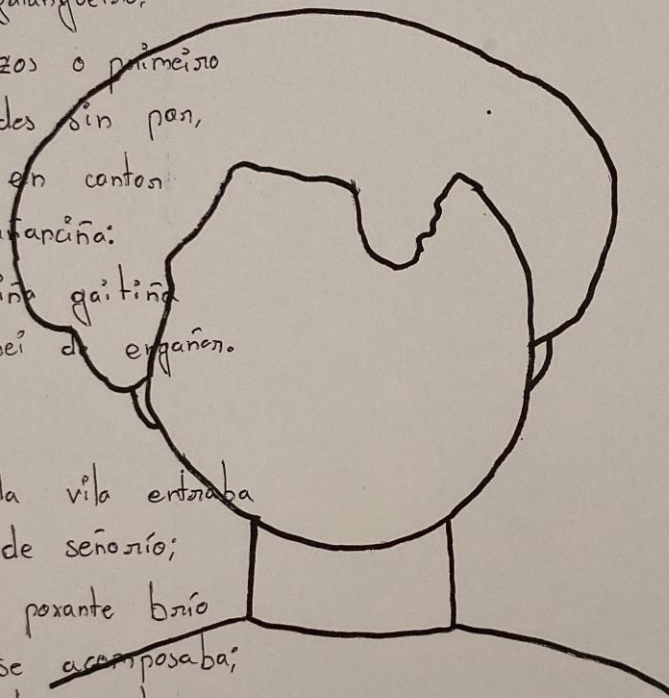 alangueiro,
zos o primeiro
des sin par,
en cantos
añanciña:
iña gaitiña
ei de engañar.
la vila entraba
de señorío;
poxante brío
se acomposaba;